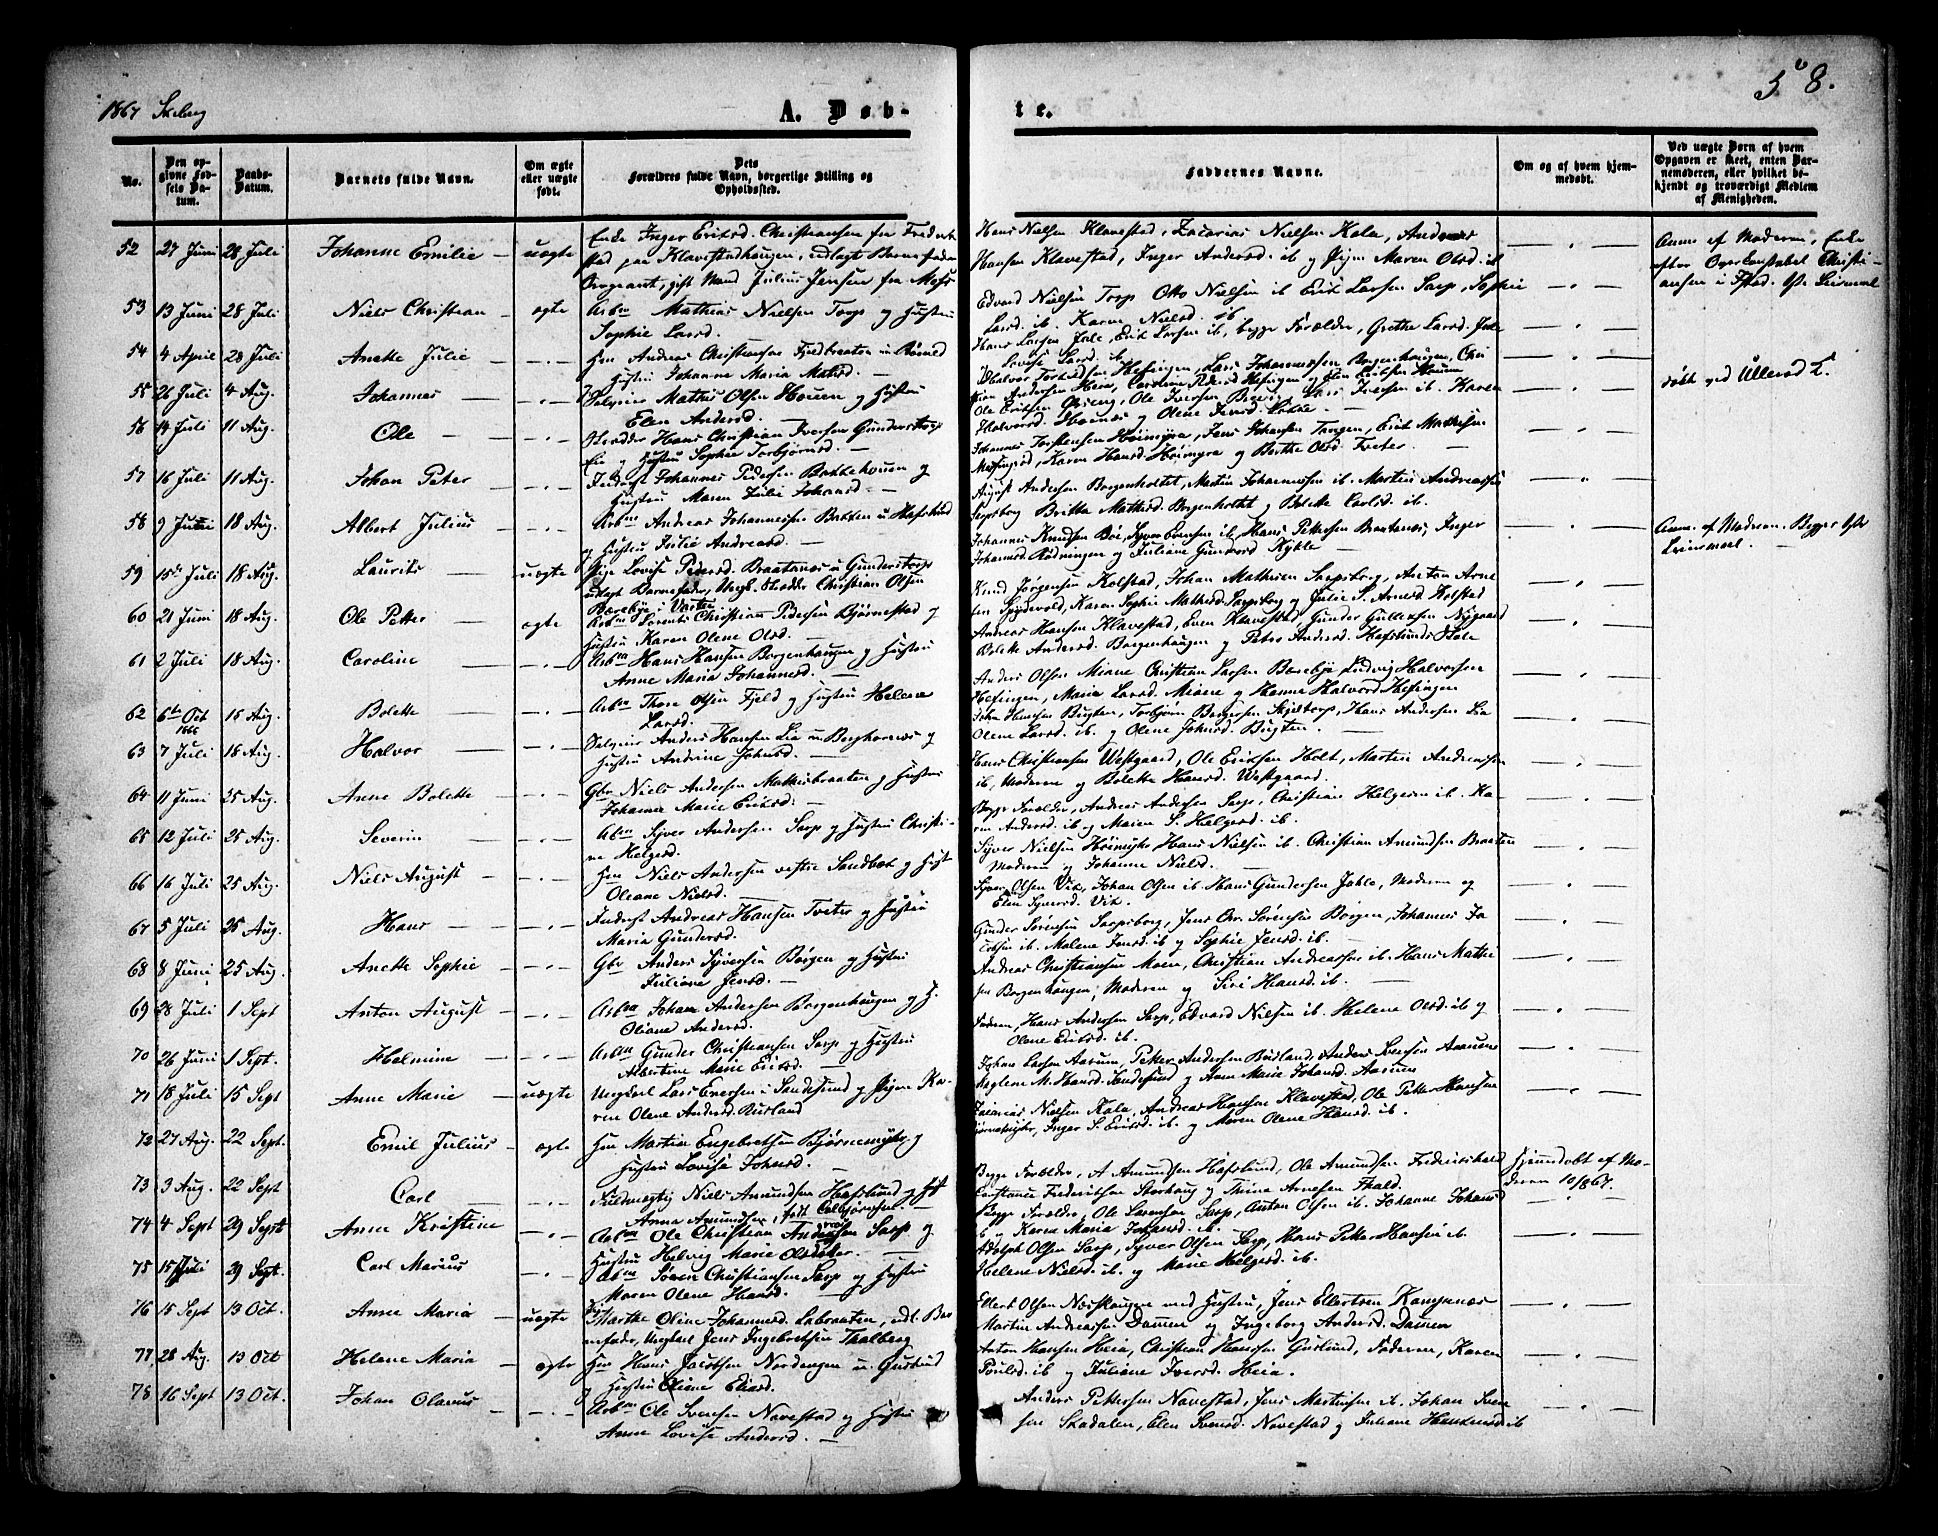 1867 Skeberg
A. Døb-
te.
58.
No.
Den opgivne Fødsels Datum.
Daabs-Datum.
Barnets fulde Navn.
Om ægte eller uægte født.
Dets Forældres fulde Navn, borgerlige Stilling og Opholdssted.
Faddernes Navne.
Om og af hvem hjemmedøbt.
Ved uægte Børn af hvem Opgaven er skeet, enten Barnemoderen, eller hvilket bekjendt og troværdigt Medlem af Menigheden.
52 27 Juni 28 Juli Johanne Emilie — uægte
Enke Inger Eriksd. Christiansen fra Fredrik
stad paa Klavestadhaugen, udlagt Barnefader
Sergeant, gift Mand Julius Jensen fra Moss
Hans Nielsen Klavestad, Zacarias Nielsen Kala, Andreas
Hansen Klavestad, Inger Andersd. ib og Pigen Maren Olsd. ib
Anm. af Moderen, Enke
efter Overconstabel Christi-
ansen i Fstad. 1ste Leiermaal
53 13 Juni 28 Juli Niels Christian — ægte
Arbm Mathias Nielsen Torp og Hustru
Sophie Larsd.
Edvard Nielsen Torp Otto Nielsen ib Erik Larsen Sarp, Sophie
Larsd. ib. Karen Nielsd. ib
54 4 April 28 Juli Anette Julie — " —
Hm Andreas Christiansen Fjeldbraaten u Bømld
Hustru Johanne Maria Matsd. —
Hans Larsen Jale, Erik Larsen ib, begge Forælder, Grethe Larsd. Jale
Lovise Larsd. ib.
døbt ved Ullerød K.
55 26 Juli 4 Aug. Johannes — " —
Selveier Mathis Olsen Houen og Hustru
Elen Andersd. —
Halvor Torkildsen Hefingen, Lars Johannessen Borgenhaugen, Chri
stian Andersen Heie, Caroline Pedersd Hefingen og Elen Eriksen Houen
56 14 Juli 11 Aug. Ole — " —
Skrædder Hans Christian Iversen Gunderstorp
Eie og Hustru Sophie Torbjørnsd. —
Ole Eriksen Opseng, Ole Iversen Brevig, Lars Iversen ib. Karen
Halvorsd. Hornæs og Olene Iversd. Lukke —
57 16 Juli 11 Aug. Johan Peter — " —
Inderst Johannes Pedersen Bakkehouen og
Hustru Maren Julie Johansd. —
Johannes Torstensen Høimyra, Jens Johansen Tangen, Erik Mathisen
Karen Hansd Høimyra og Berthe Olsd Tveter. —
58 9 Juli 18 Aug. Albert Julius — " —
Arbm Andreas Johannessen Bakken u Hafslund
og Hustru Julie Andreasd. —
August Andersen Borgenholtet, Martin Johannessen ib. Martin Andreassen
Sarpsborg Britta Mathisd. Borgenholtet og Bolette Carlsd. ib.
59 15de Juli 18 Aug. Laurits — uægte
Pige Lovise Pedersd. Braatenæs u Gunderstorp
udlagt Barnefader, Ungk. Skrædder Christian Olsen
Bærebye i Varteig
Johannes Knudsen Bøe, Syver Evensen ib, Hans Pettersen Braatenæs, Inger
Johannesd. Rødningen og Juliane Gundersd Kykle —
Anm. af Moderen. Begges 1ste
Leiermaal. —
60 21 Juni 18 Aug. Ole Petter — ægte
Arbm Lorents Christian Pedersen Bjørnestad og
Hustru Karen Olene Olsd. —
Knud Jørgensen Kolstad, Johan Mathisen Sarpsborg, Anton Arne
sen Spydevold, Karen Sophie Mathisd. Sarpsborg og Julie S. Arnesd. Kolstad
61 2 Juli 18 Aug. Caroline — " —
Arbm Hans Hansen Borgenhaugen og Hustru
Anne Maria Johannesd. —
Andreas Hansen Klavestad, Even Klavestad, Gunder Gulliksen Nygaard
Bolette Andersd. Borgenhaugen og Petra Andersd. Hafslunds Hole
62 6te Oct 1866 15 Aug. Bolette — " —
Arbm Thore Olsen Fjeld og Hustru Helene
Larsd.
Anders Olsen Miane Christian Larsen Borebye Ludvig Halvorsen
Hefingen, Maria Larsd. Miane og Hanna Halvord Hefingen
63 7 Juli 18 Aug. Halvor — " —
Selveier Anders Hansen Lia u Borghornæs og
Hustru Andrine Johnsd. —
John Hansen Bugten, Torbjørn Borgersen Skjeltorp, Hans Andersen Lia
Olene Larsd. ib. og Olene Johnsd. Bugten. —
64 11 Juni 25 Aug. Anne Bolette — " —
Gbr Niels Andersen Mathisbraaten og Hustru
Johanne Marie Eriksd. —
Hans Christiansen Westgaard, Ole Eriksen Holt, Martin Andreassen
ib, Moderen og Bolette Hansd. Westgaard.
65 12 Juli 25 Aug. Severin — " —
Arbm Syver Andersen Sarp og Hustru Christi-
ne Helgesd.
Begge Forælder, Andreas Andersen Sarp, Christian Helgesen ib. Ka-
ren Andersd. ib og Maren S. Helgesd. ib.
66 16 Juli 25 Aug. Niels August — " —
Hm Niels Andersen vestre Sandbæk og Hustr
Oleane Nielsd. —
Syver Nielsen Høimyhr Hans Nielsen ib. Christian Amundsen Braaten
Moderen og Johanne Nielsd. —
67 5 Juli 25 Aug. Hans — " —
Inderst Andreas Hansen Tveter og Hustru
Maria Gundersd.
Syver Olsen Vik, Johan Olsen ib. Hans Gundersen Jahle, Moderen og
Elen Syversd. Vik.
68 8 Juni 25 Aug. Anette Sophie — " —
Gbr Anders Syversen Borgen og Hustru
Juliane Jensd. —
Gunder Sørensen Sarpsborg, Jens Chr. Sørensen Borgen, Johannes Ja
cobsen ib. Malene Jensd. ib og Sophie Jensd. ib. —
69 28 Juli 1 Sept Anton August — " —
Arbm Johan Andersen Borgenhaugen og H.
Oliane Andersd. —
Andreas Christiansen Moen, Christian Andreassen ib. Hans Mathi
sen Borgenhaugen, Moderen og Siri Hansd. ib. —
70 26 Juni 1 Sept. Halmine — " —
Arbm Gunder Christiansen Sarp og Hustru
Albertine Marie Eriksd. —
Faderen, Hans Andersen Sarp, Edvard Nielsen ib. Helene Olsd. ib og
Olene Eriksd. ib.
71 18 Juli 15 Sept Anne Marie — uægte
Ungkarl Lars Eversen i Sandesund og Pigen Ka-
ren Olene Andersd. Buland
Johan Larsen Aarum, Petter Andersen Buland, Anders Iversen Aarum
Raglene M. Hansd. Sandesund og Anne Marie Johansd. Aarum
72 27 Aug. 22 Sept. Emil Julius — ægte
Hm Martin Engebretsen Bjørnemyhr og
Hustru Lovise Johnsd. —
Zacarias Nielsen Kala, Andreas Hansen Klavestad, Ole Petter Hansen
Bjørnemyhr, Inger S. Eriksd. ib. og Maren Olene Hansd. ib.
73 3 Aug. 22 Sept Carl — " —
Fuldmægtig Niels Amundsen Hafslund og H.
Anna Amundsen, født Colbjørnsen. —
Begge Forælder, A Amundsen Hafslund, Ole Amundsen Fredrikshald
Constance Fredriksen Storhaug og Thrine Arnesen Fhald.
Hjemdøbt af Mo-
deren 10/8 67.
74 4 Sept 29 Sept Anne Kristine — " —
Arbm Ole Christian Andersen Sarp og
Hustru Helvig Marie Olsd. —
Begge Forælder, Ole Larensen Sarp, Anton Olsen ib. Johanne Johansd
ib og Karen Maria Johansd. ib.
75 15 Juli 29 Sept. Carl Marius — " —
Abm Søren Christiansen Sarp og Hustru
Maren Olene Hansd. —
Adolph Olsen Sarp, Syver Olsen Sarp, Hans Petter Hansen ib
Helene Nielsd. ib. og Marie Helgesd. ib.
76 15 Sept 13 Oct. Anne Maria — uægte
Pige Marthe Oline Johannesd. Labraaten, udl. Bar
nefader, Ungkarl Jens Ingebretsen Thalberg
Ellert Olsen Næshaugen med Hustru, Jens Ellertsen Kampenæs
Martin Andreassen Dammen og Ingeborg Andersd. Dammen
77 28 Aug. 13 Oct Helene Maria — ægte
Hm Hans Jacobsen Nordengen u. Guslund
og Hustru Oliene Eliasd.
Anton Hansen Heia, Christian Hansen Guslund, Faderen, Karen
Poulsd. ib og Juliane Iversd. Heia.
78 16 Sept 13 Oct. Johan Olavus — " —
Arbm Ole Svensen Navestad og Hustru
Anne Lovise Andersd. —
Anders Pettersen Navestad, Jens Martinsen ib. Johan Sven
sen Skadalen, Elen Svensd. Navestad og Juliane Hansensd ib